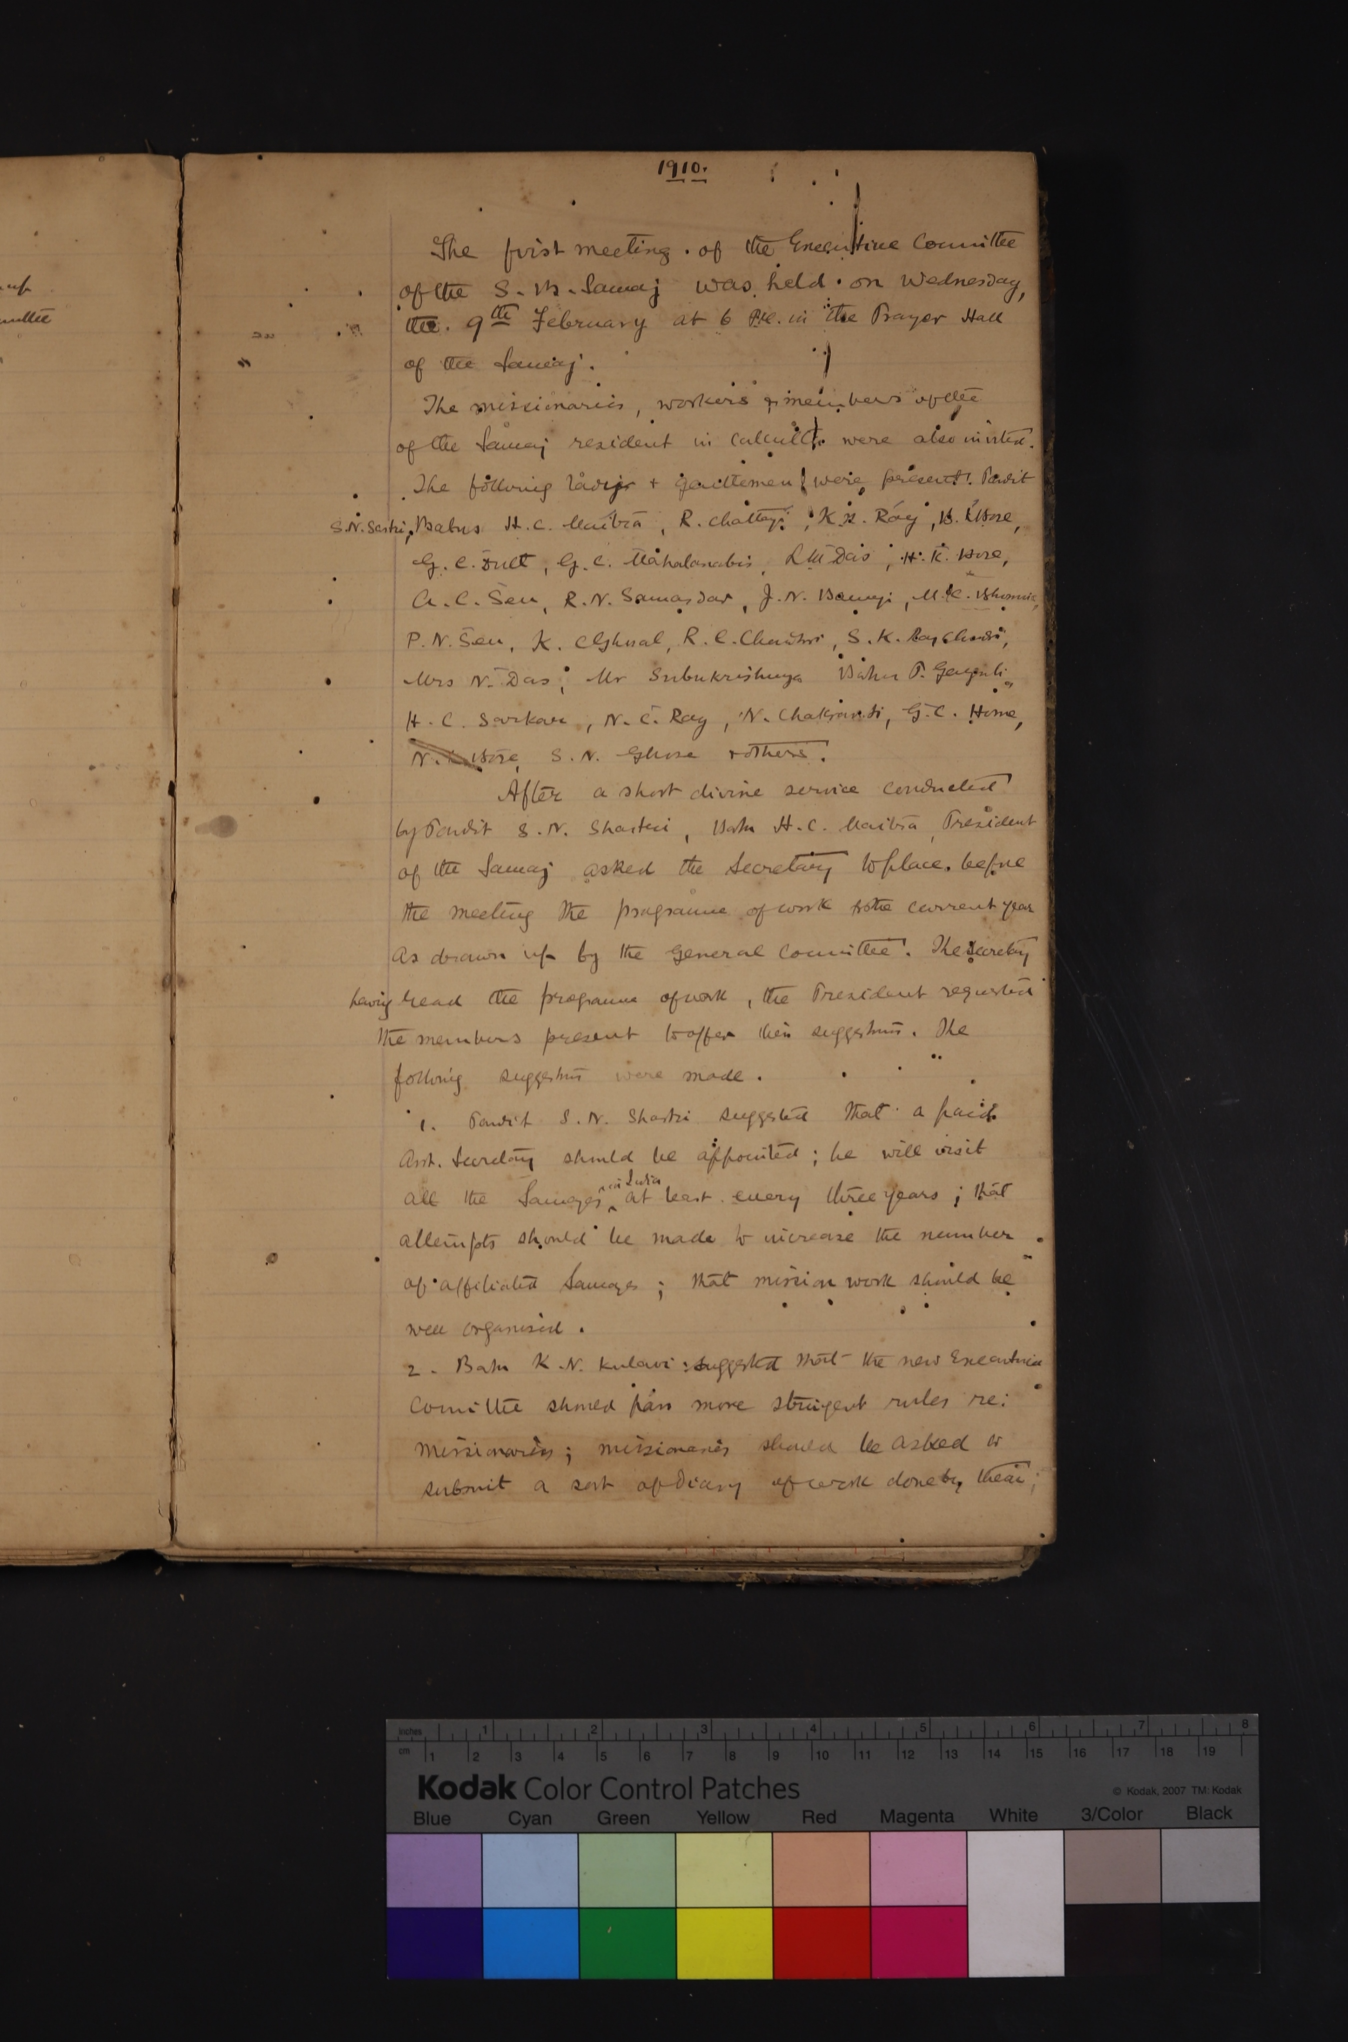 1910.
The first meeting of the Executive Committee
of the S. B. Samaj was held on Wednesday,
the 9th February at 6 P.M. in the Prayer Hall
of the Samaj.
The missionaries, workers & members of the
of the Samaj resident in Calcutta were also invited.
The following ladies + gentlemen were present. Pandit
S.N. Sastri, Babus H. C. Maitra, R. Chatterji, K. K. Ray, B. Bose,
G. C. Dutt, G. C. Mahalanabis, L M Das, H. K. Bose,
A. C. Sen, R. N. Samaddar, J. N. Banerji, M. C. Bhowmic,
P. N. Sen, K. C Ghosal, R. C. Chaudhri, S. K. Raychaudri,
Mrs N. Das, Mr Subukrishnaya Babu P. Ganguli
H. C. Sarkar, N. C. Ray, N. Chakravarti, G. C. Home,
N. Bose, S. N. Ghose & others.
After a short divine service conducted
by Pandit S. N. Shastri, Babu H. C. Maitra, President
of the Samaj asked the Secretary to place before
the meeting the programme of work for the current year
as drawn up by the General Committee. The Secretary
having read the programme of work, the President requested
the members present to offer their suggestions. The
following suggestions were made.
1. Pandit S. N. Shastri suggested that a paid
Asst. Secretary should be appointed; he will visit
all the Samajes in India at least every three years; that
attempts should be made to increase the number
of affiliated Samajes; that mission work should be
well organised.
2. Babu K. N. Kulavi suggested that the new Executive
Committee should pass more stringent rules re:
missionaries; missionaries should be asked to
submit a sort of Diary of work done by them;
inches 1 2 3 4 5 6 7 8
cm 1 2 3 4 5 6 7 8 9 10 11 12 13 14 15 16 17 18 19
Kodak Color Control Patches © Kodak, 2007 TM: Kodak
Blue Cyan Green Yellow Red Magenta White 3/Color Black